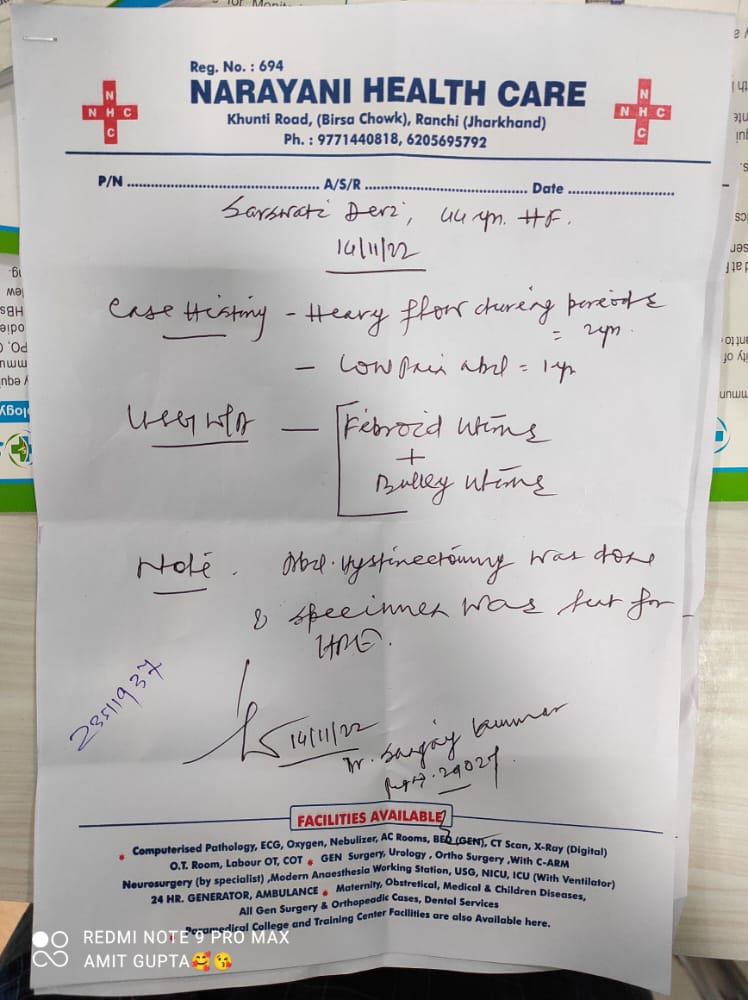 Reg. No. : 694
NARAYANI HEALTH CARE
Khunti Road, (Birsa Chowk), Ranchi (Jharkhand)
Ph. : 9771440818, 6205695792
N H C
N H C
N H C
N H C
P/N ........ A/S/R ........ Date ........
Sarswati Devi, 44 yr. HF.
14/11/22
Case History - Heavy flow during periods
= 2yr.
- Low Pain abd = 1yr
USG W/A — Fibroid Uterus
+
Bulky Uterus
Note. Abd. Hysterectomy was done
& specimen was sent for
HPE.
23511937
14/11/22
Dr. Sanjay Kumar
FACILITIES AVAILABLE
Computerised Pathology, ECG, Oxygen, Nebulizer, AC Rooms, BED (GEN), CT Scan, X-Ray (Digital)
O.T. Room, Labour OT, COT • GEN Surgery, Urology , Ortho Surgery ,With C-ARM
Neurosurgery (by specialist) ,Modern Anaesthesia Working Station, USG, NICU, ICU (With Ventilator)
24 HR. GENERATOR, AMBULANCE • Maternity, Obstretical, Medical & Children Diseases,
All Gen Surgery & Orthopeadic Cases, Dental Services
Paramedical College and Training Center Facilities are also Available here.
REDMI NOTE 9 PRO MAX
AMIT GUPTA🥰😘